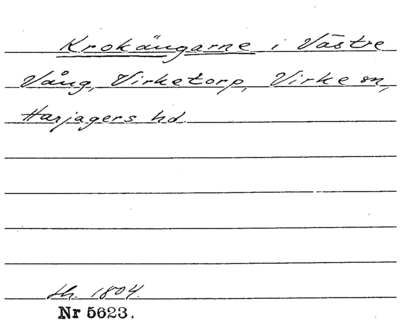 Krokängarne i Västre
Vång, Virketorp, Virke sn,
Harjagers hd.
sk. 1804.
Nr 5623.